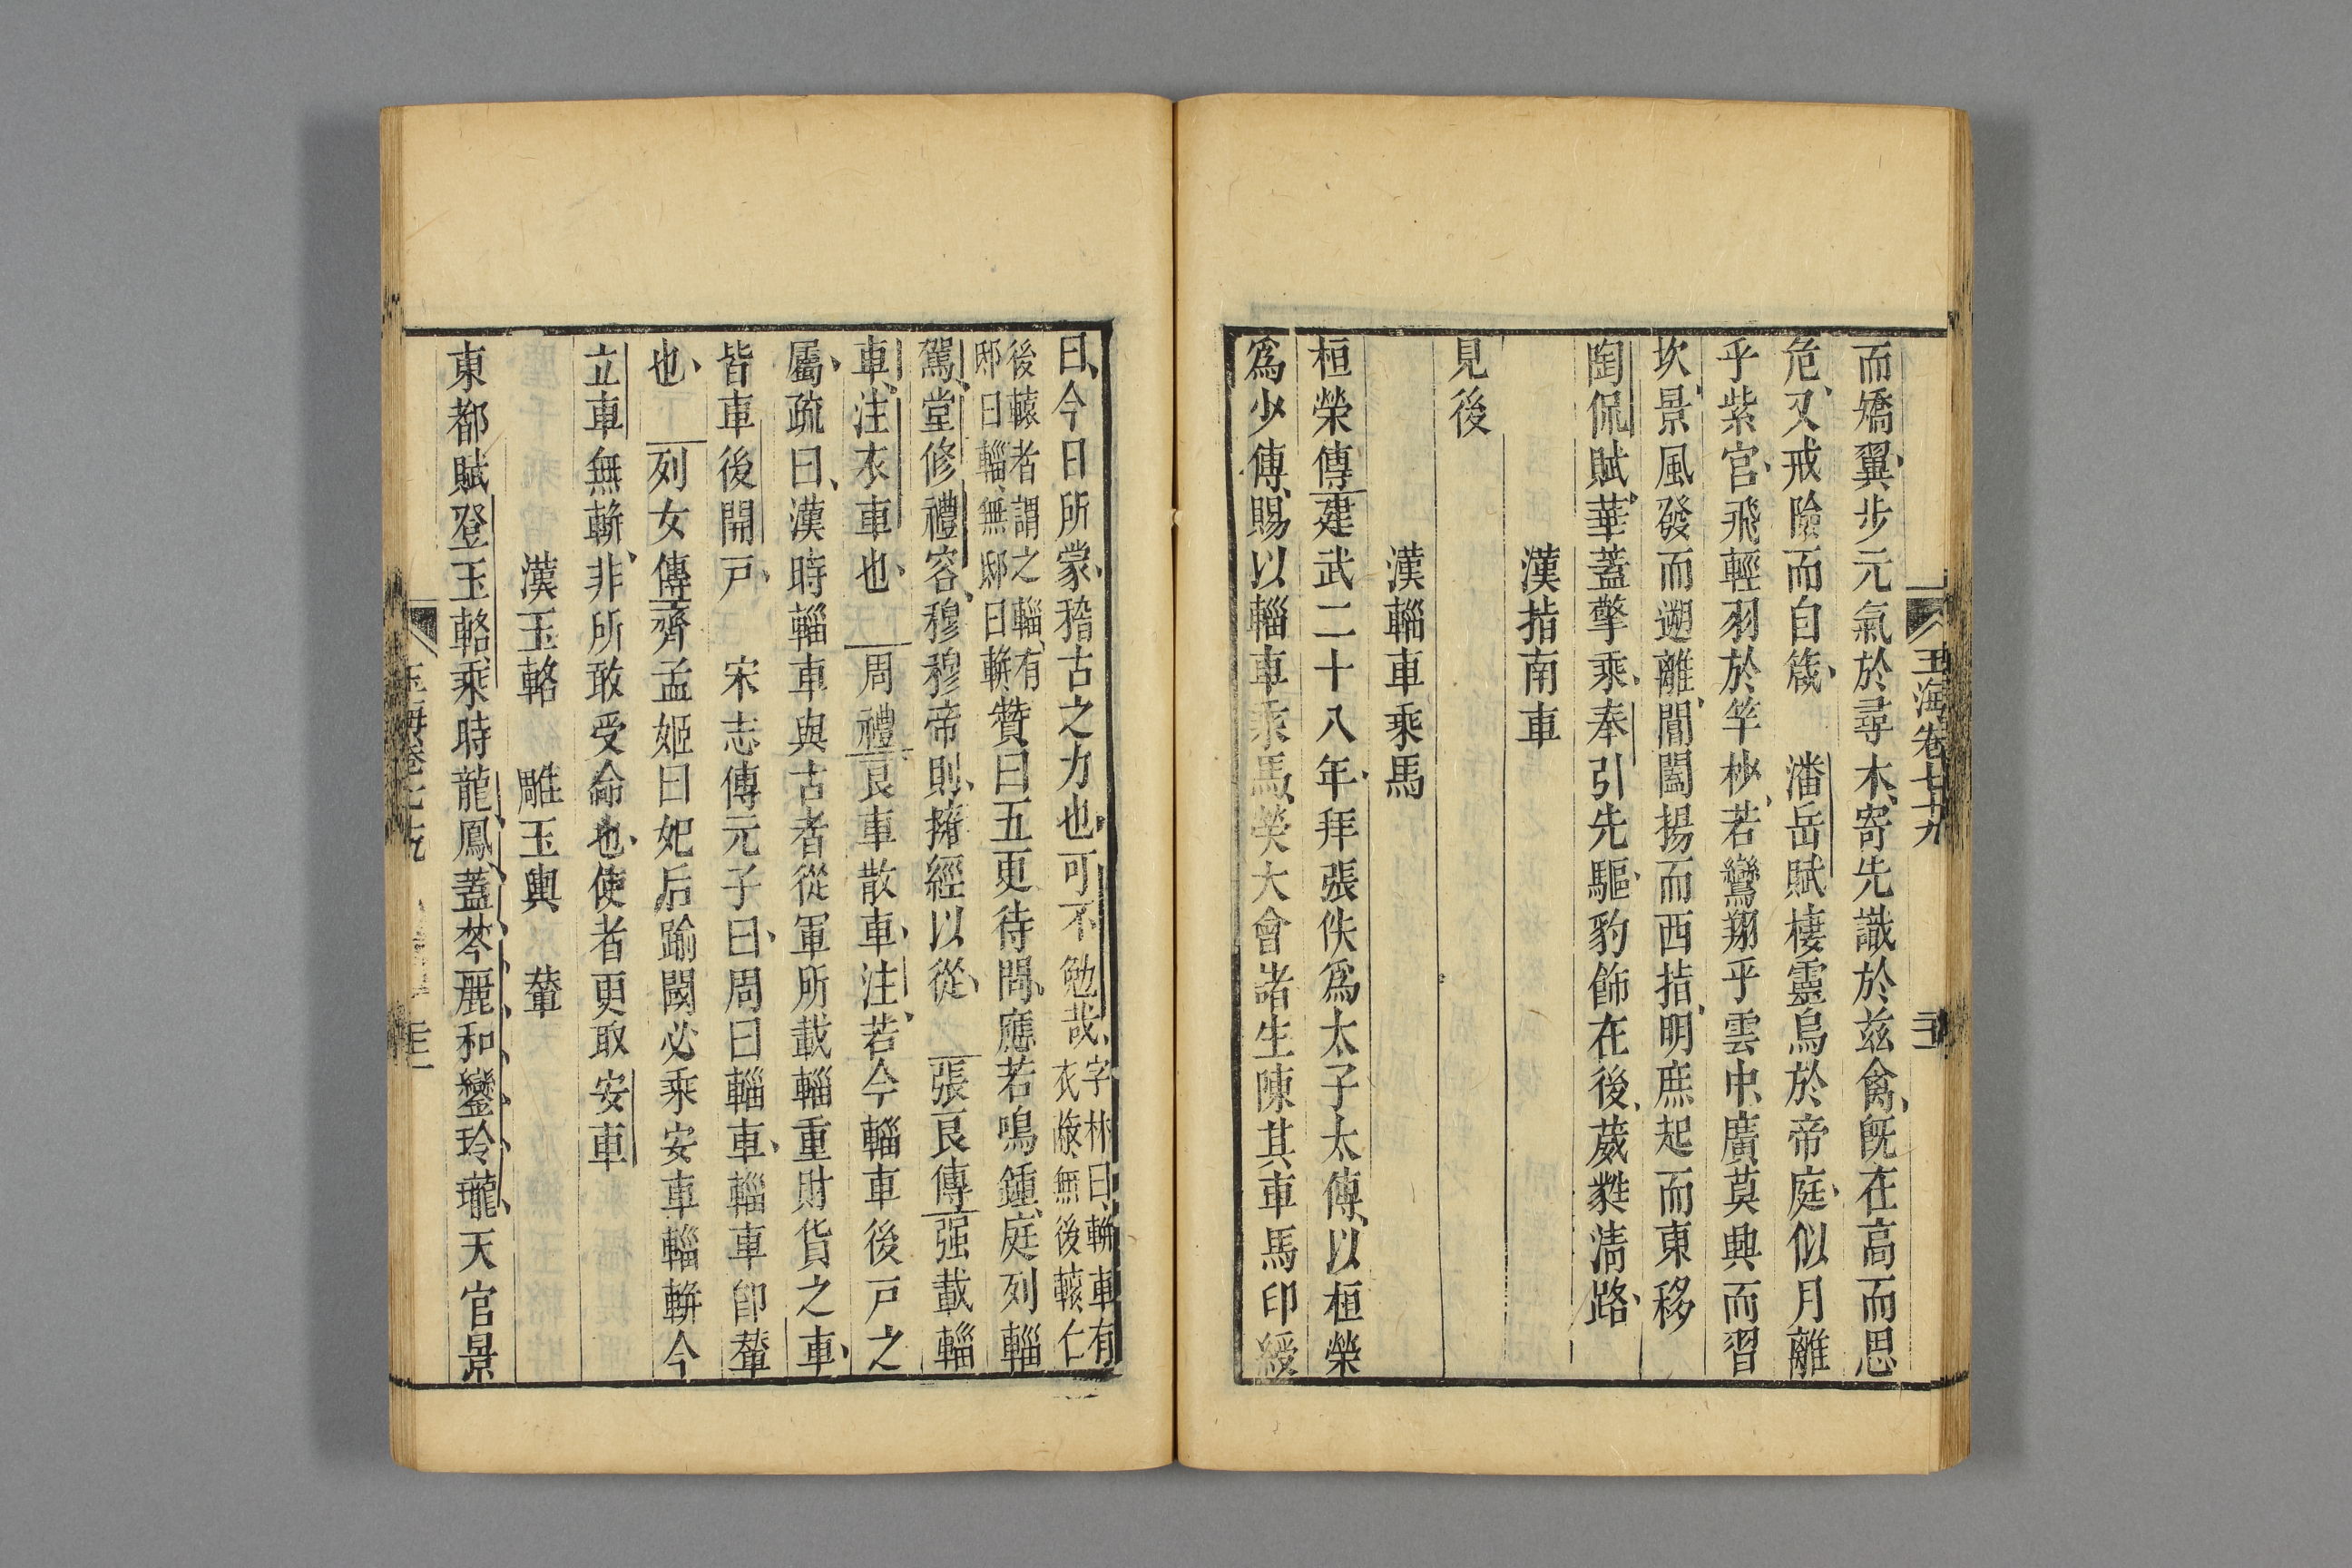 玉海卷七十九
二十
而矯翼步元氣於尋木寄先識於兹禽旣在高而思
危又戒險而自箴 潘岳賦棲靈烏於帝庭似月離
乎紫宫飛輕羽於竿杪若鸞翔乎雲中廣莫興而習
坎景風發而遡離閶闔揚而西掿明庶起而東移
陶侃賦華蓋擎乘奉引先驅豹飾在後葳㽔淸路
漢指南車
見後
漢輜車乘馬
桓榮傳建武二十八年拜張佚爲太子太傅以桓榮
爲少傅賜以輜車乘馬榮大會諸生陳其車馬印綬
曰今日所蒙稽古之力也可不勉哉字林曰軿車有衣蔽無後轅仁
後轅者謂之輜有邸曰輜無邸曰軿贊曰五更待問應若鳴鍾庭列輜
駕堂修禮容穆穆帝則擁經以從 張良傳强載輜
車注衣車也 周禮良車散車注若今輜車後戸之
屬疏曰漢時輜車與古者從軍所載輜重財貨之車
皆車後開戸 宋志傅元子曰周曰輜車輜車卽輦
也 列女傳齊孟姬曰妃后踰閾必乘安車輜軿今
立車無軿非所敢受命也使者更取安車
漢玉輅 雕玉輿 輦
東都賦登玉輅乘時龍鳳蓋棽麗和鑾玲瓏天官景